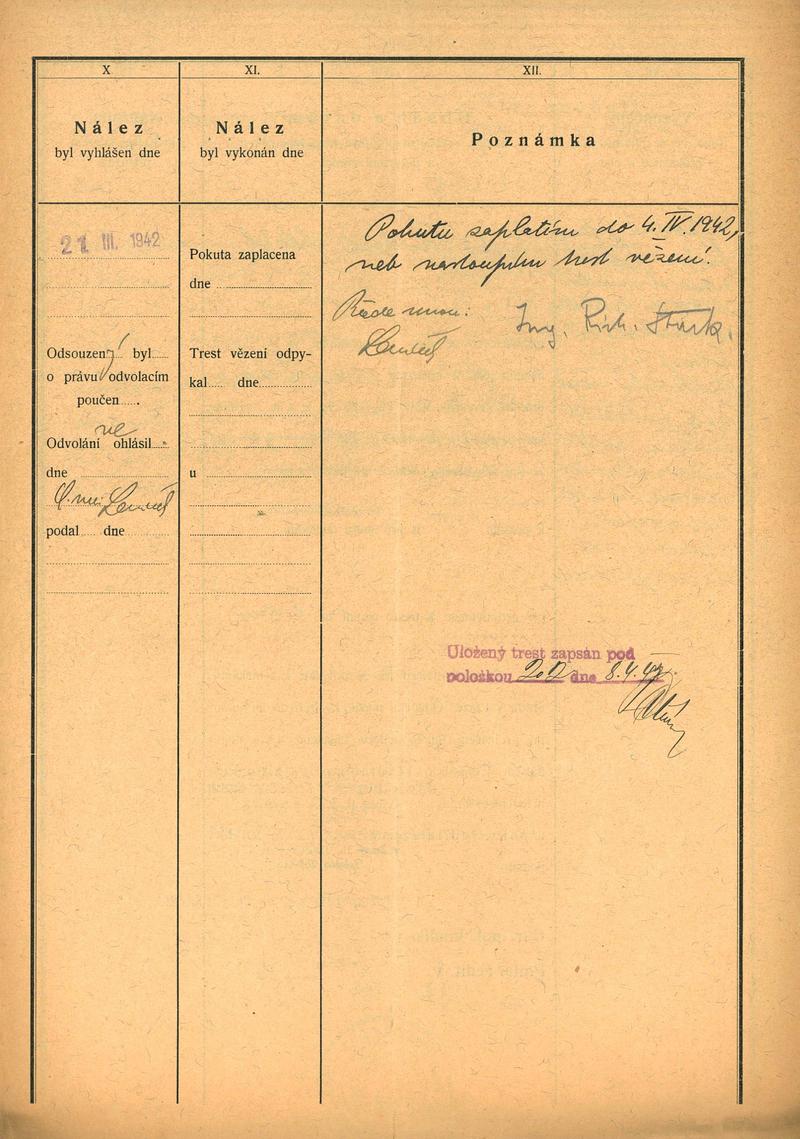 X
Nález
byl vyhlášen dne
21. III. 1942
Odsouzený byl
o právu odvolacím
poučen
ne
Odvolání ohlásil
dne
podal dne
XI.
Nález
byl vykonán dne
Pokuta zaplacena
dne
Trest vězení odpy-
kal dne
u
XII.
Poznámka
Pokutu zaplatím do 4. IV. 1942,
neb nastoupím trest vězení.
Přede mnou: Ing. Rich. Stark.
Uložený trest zapsán pod
položkou dne 8.4.42